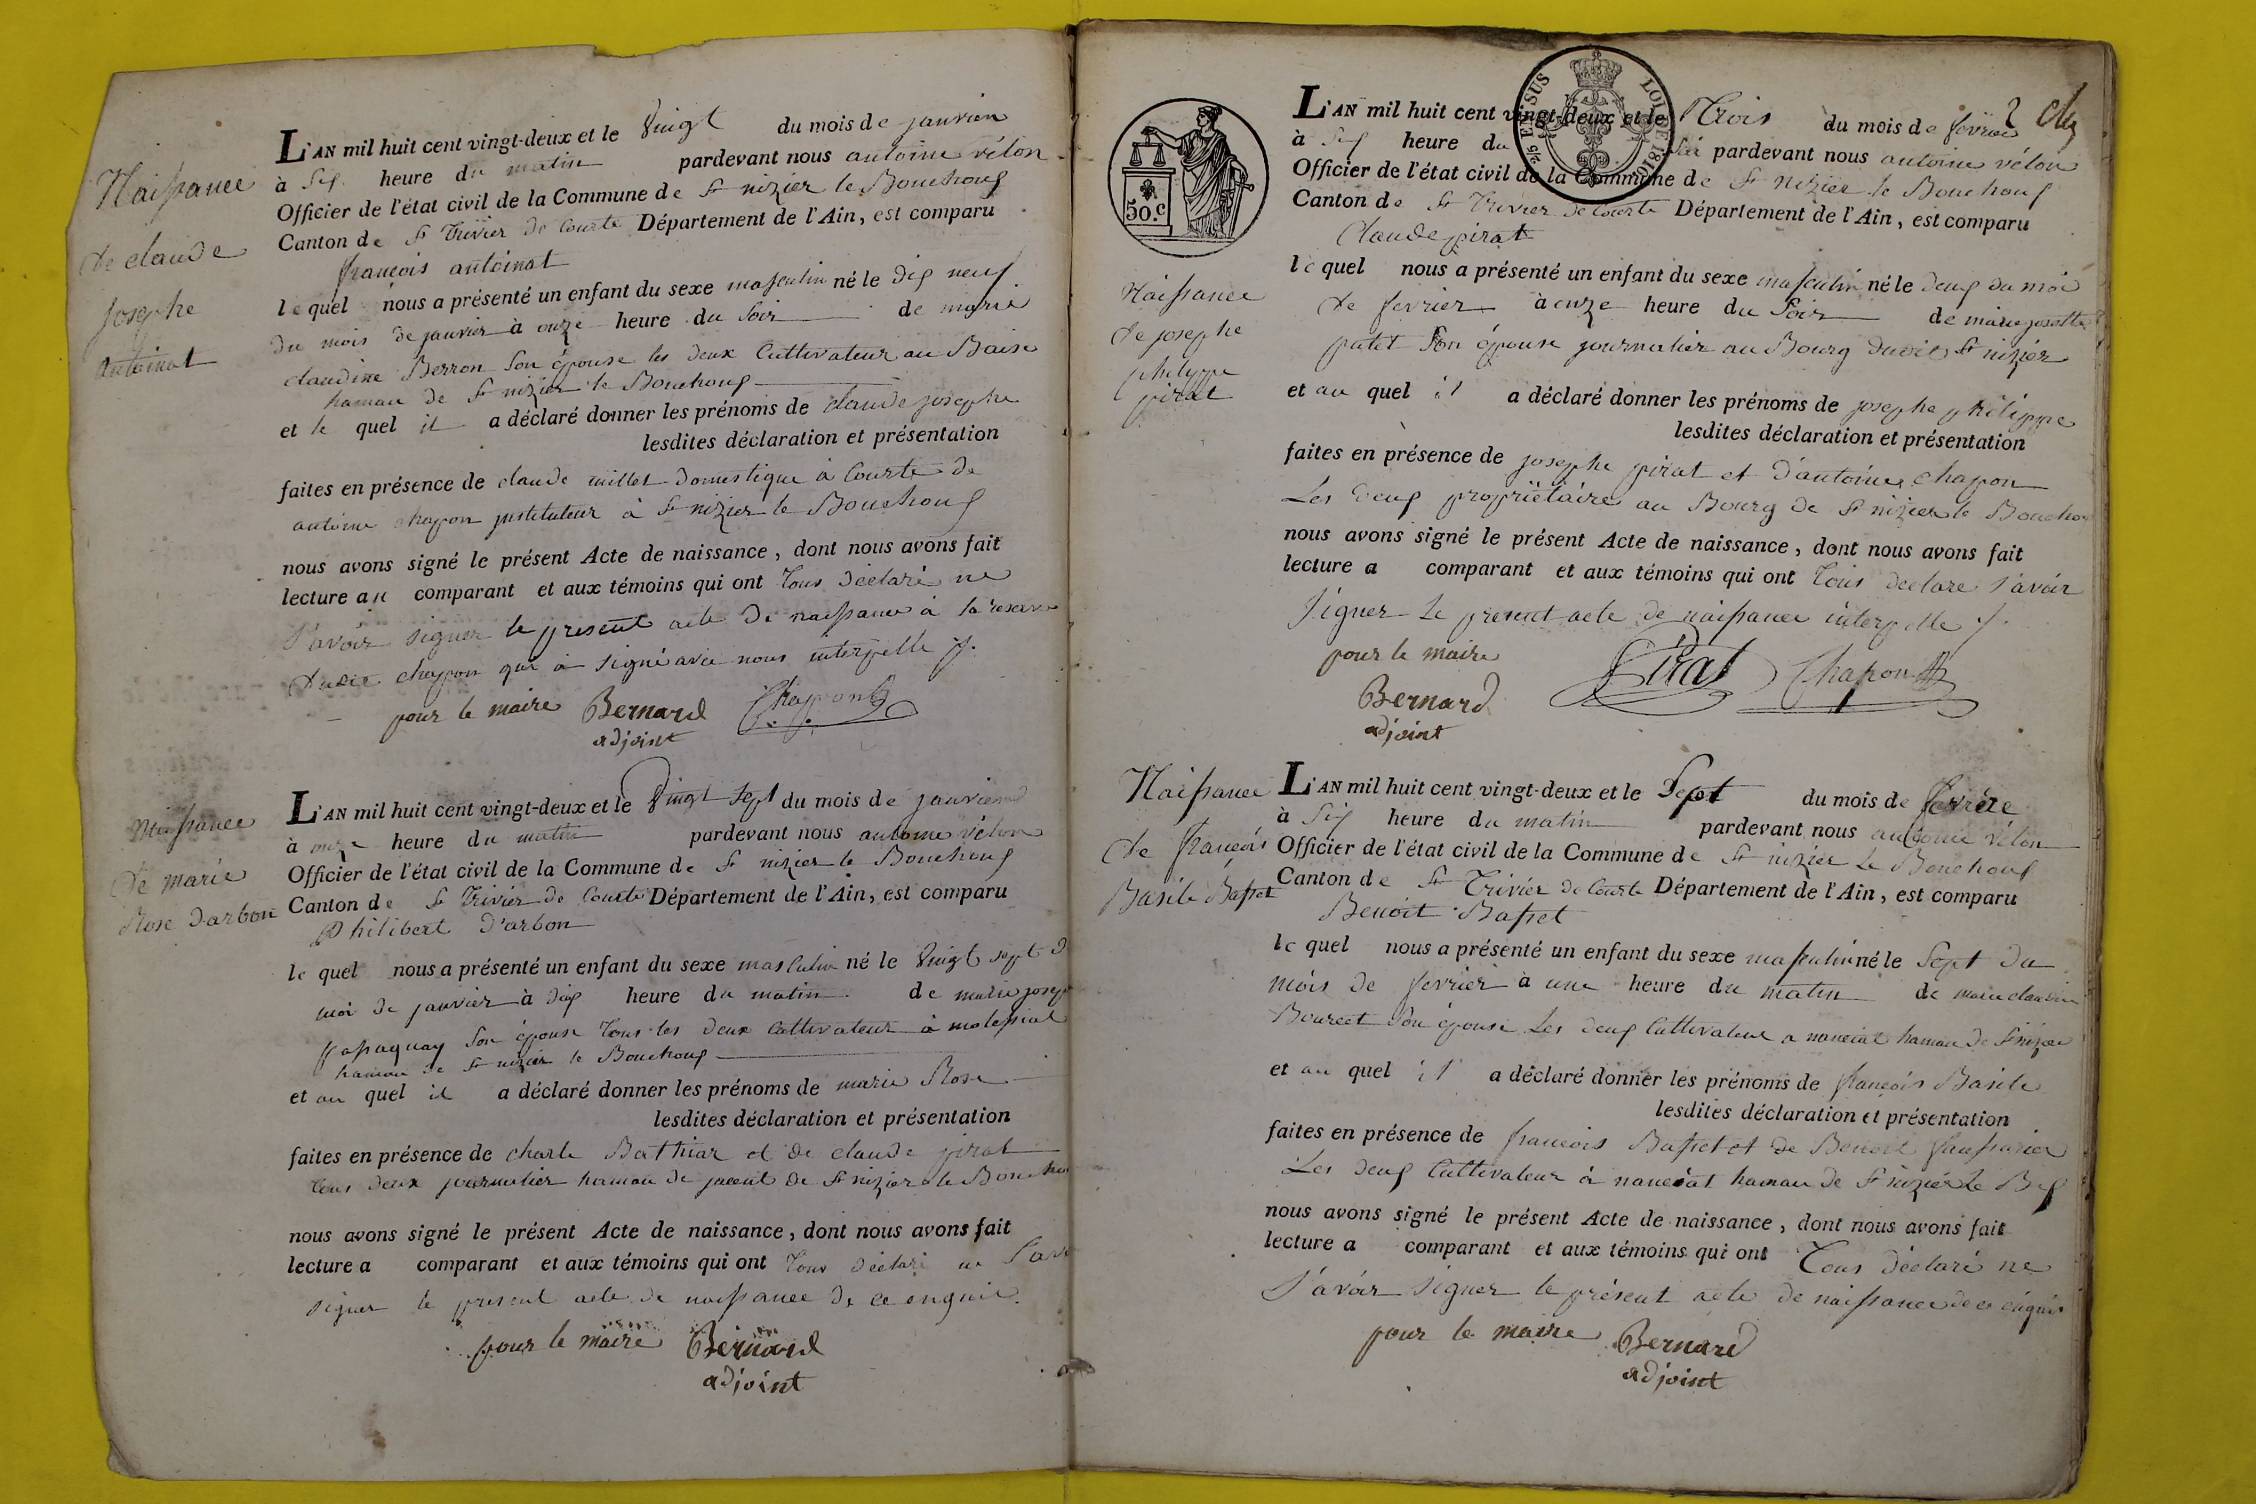 Naissance
de claude
josephe
antoinat
L'AN mil huit cent vingt-deux et le vingt du mois de janvier
à six heure du matin pardevant nous antoine vélon
Officier de l'état civil de la Commune de St nizier le Bouchoux
Canton de St Trivier de Courte Département de l'Ain, est comparu
françois antoinat
lequel nous a présenté un enfant du sexe masculin né le dix neuf
du mois de janvier à onze heure du soir de marie
claudine Berron son épouse les deux Cultivateur au Baise
hamau de St nizier le Bouchoux
et le quel il a déclaré donner les prénoms de claude josephe
lesdites déclaration et présentation
faites en présence de claude millet domestique à Courte de
antoine chapon justituteur à St nizier le Bouchoux
nous avons signé le présent Acte de naissance, dont nous avons fait
lecture au comparant et aux témoins qui ont tous déclaré ne
savoir signer le present acte de naissance à la reserve
dudit chapon qui à signé avec nous interpelle
pour le maire Bernard Chapon
adjoint
Naissance
de marie
Rose darbon
L'AN mil huit cent vingt-deux et le vingt sept du mois de janvier
à onze heure du matin pardevant nous antoine vélon
Officier de l'état civil de la Commune de St nizier le Bouchoux
Canton de St Trivier de Courte Département de l'Ain, est comparu
Philibert D'arbon
lequel nous a présenté un enfant du sexe masculin né le vingt sept d
moi de janvier à dix heure du matin de marie josep
son épouse tous les deux Cultivateur à
hamau de St nizier le Bouchoux
et au quel il a déclaré donner les prénoms de marie Rose
lesdites déclaration et présentation
faites en présence de charle Bathiar et de claude pirat
tous deux journalier hamau de de St nizier le Bouchou
nous avons signé le présent Acte de naissance, dont nous avons fait
lecture a comparant et aux témoins qui ont tous déclaré ne savo
signer le present acte de naissance de ce enquis
pour le maire Bernard
adjoint
2
50.c
2/5 EN SUS LOI DE 1816
Naissance
de josephe
philippe
pirat
L'AN mil huit cent vingt-deux et le Trois du mois de fevrier
à six heure du pardevant nous antoine vélon
Officier de l'état civil de la Commune de St Nizier le Bouchoux
Canton de St Trivier de Courte Département de l'Ain, est comparu
Claude pirat
lequel nous a présenté un enfant du sexe masculin né le deux du moi
de fevrier à onze heure du soir de marie josette
patet son épouse journalier au Bourg dudit St nizier
et au quel il a déclaré donner les prénoms de josephe philippe
lesdites déclaration et présentation
faites en présence de josephe pirat et d'antoine chapon
Les deux propriétaire au Bourg de St nizier le Boucho
nous avons signé le présent Acte de naissance, dont nous avons fait
lecture a comparant et aux témoins qui ont tous declare savoir
signer le present acte de naissance interpelle
pour le maire Pirat Chapon
Bernard
adjoint
Naissance
de françois
Basile Basset
L'AN mil huit cent vingt-deux et le Sept du mois de fevrier
à six heure du matin pardevant nous antoine vélon
Officier de l'état civil de la Commune de St nizier le Bouchoux
Canton de St Trivier de Courte Département de l'Ain, est comparu
Benoit Basset
lequel nous a présenté un enfant du sexe masculin né le Sept du
mois de fevrier à une heure du matin de marie claudine
Bourcet son épouse Les deux Cultivateur a naneiat hamau de St nizier
et au quel il a déclaré donner les prénoms de françois Basile
lesdites déclaration et présentation
faites en présence de francois Basset et de Benoit
Les deux Cultivateur à naneiat hamau de St nizier le Bx
nous avons signé le présent Acte de naissance, dont nous avons fait
lecture a comparant et aux témoins qui ont Tous déclaré ne
savoir signer le présent acte de naissance de ce enquis
pour le maire Bernard
adjoint